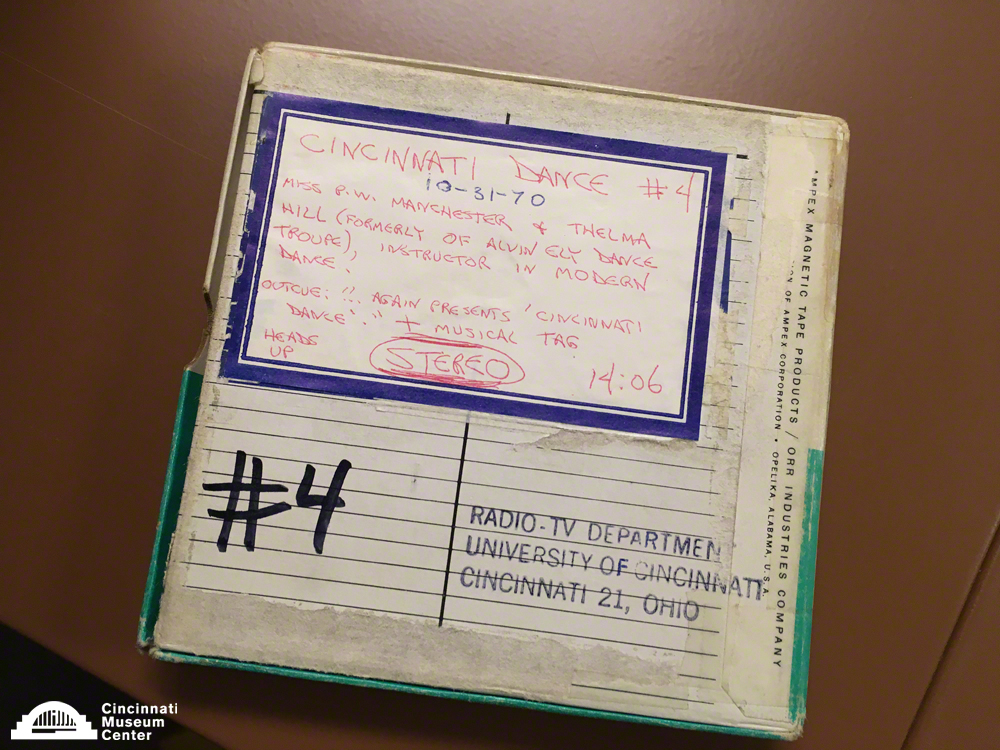 CINCINNATI DANCE #4
10-31-70
MISS P.W. MANCHESTER & THELMA
HILL (FORMERLY OF ALVIN ELY DANCE
TROUPE), INSTRUCTOR IN MODERN
DANCE.
OUTCUE: "... AGAIN PRESENTS 'CINCINNATI
DANCE'." + MUSICAL TAG
HEADS
UP
STEREO
14:06
#4
RADIO-TV DEPARTMEN
UNIVERSITY OF CINCINNATI
CINCINNATI 21, OHIO
MPEX MAGNETIC TAPE PRODUCTS / ORR INDUSTRIES COMPANY
ON OF AMPEX CORPORATION • OPELIKA, ALABAMA, U.S.A.
Cincinnati
Museum
Center